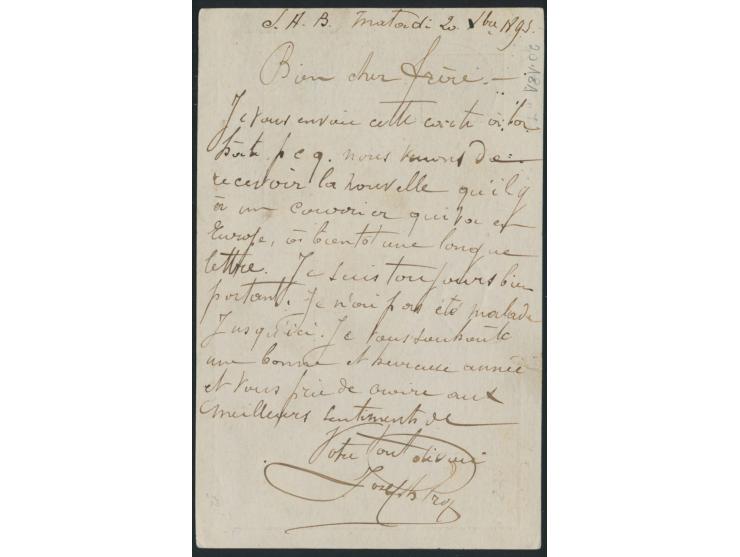 S. A. B. Matadi 20 Xbre 1895.
Bien cher frère. —
Je vous envoie cette carte à la
hâte p c q. nous venons de
recevoir la nouvelle qu'il y
à un courrier qui va en
Europe, à bientôt une longue
lettre. Je suis toujours bien
portant. Je n'ai pas été malade
Jusqu'ici. Je vous souhaite
une bonne et heureuse année
et vous prie de croire aux
meilleurs sentiments de
Votre tout dévoué
Joseph